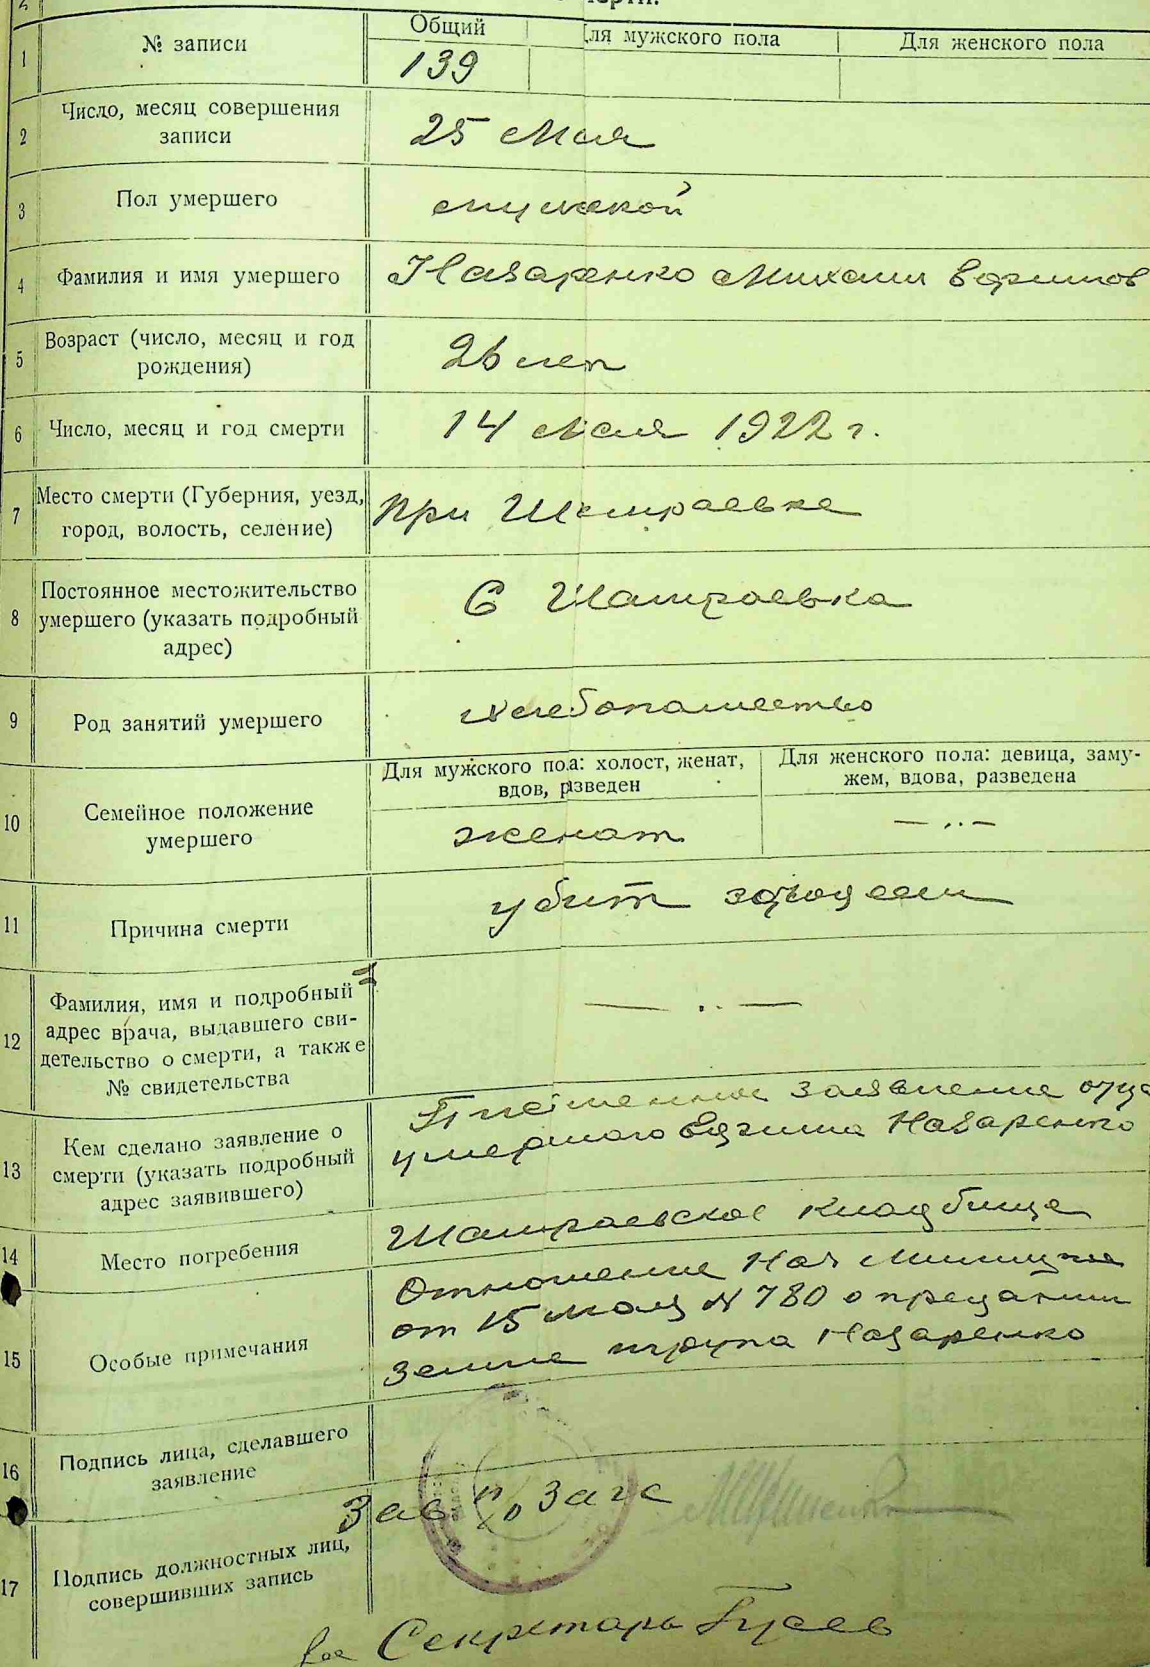 2
1 № записи
Общий
Для мужского пола
Для женского пола
139
2 Число, месяц совершения
записи
25 Мая
3 Пол умершего
мужской
4 Фамилия и имя умершего
Назаренко Михаил Ефимов
5 Возраст (число, месяц и год
рождения)
26 лет
6 Число, месяц и год смерти
14 Мая 1922 г.
7 Место смерти (Губерния, уезд,
город, волость, селение)
при Шамраевке
8 Постоянное местожительство
умершего (указать подробный
адрес)
С Шамраевка
9 Род занятий умершего
хлебопашество
10 Семейное положение
умершего
Для мужского пола: холост, женат,
вдов, разведен
Для женского пола: девица, заму-
жем, вдова, разведена
женат
— „ —
11 Причина смерти
убит
12 Фамилия, имя и подробный
адрес врача, выдавшего сви-
детельство о смерти, а также
№ свидетельства
— „ —
13 Кем сделано заявление о
смерти (указать подробный
адрес заявившего)
Письменное заявление отца
умершого Назаренко
14 Место погребения
Шамраевское кладбище
15 Особые примечания
Отношение Нач Милиции
от 15 мая N 780 о предании
земле трупа Назаренко
16 Подпись лица, сделавшего
заявление
17 Подпись должностных лиц,
совершивших запись
Зав. п/о Загс
Секретарь Гусев